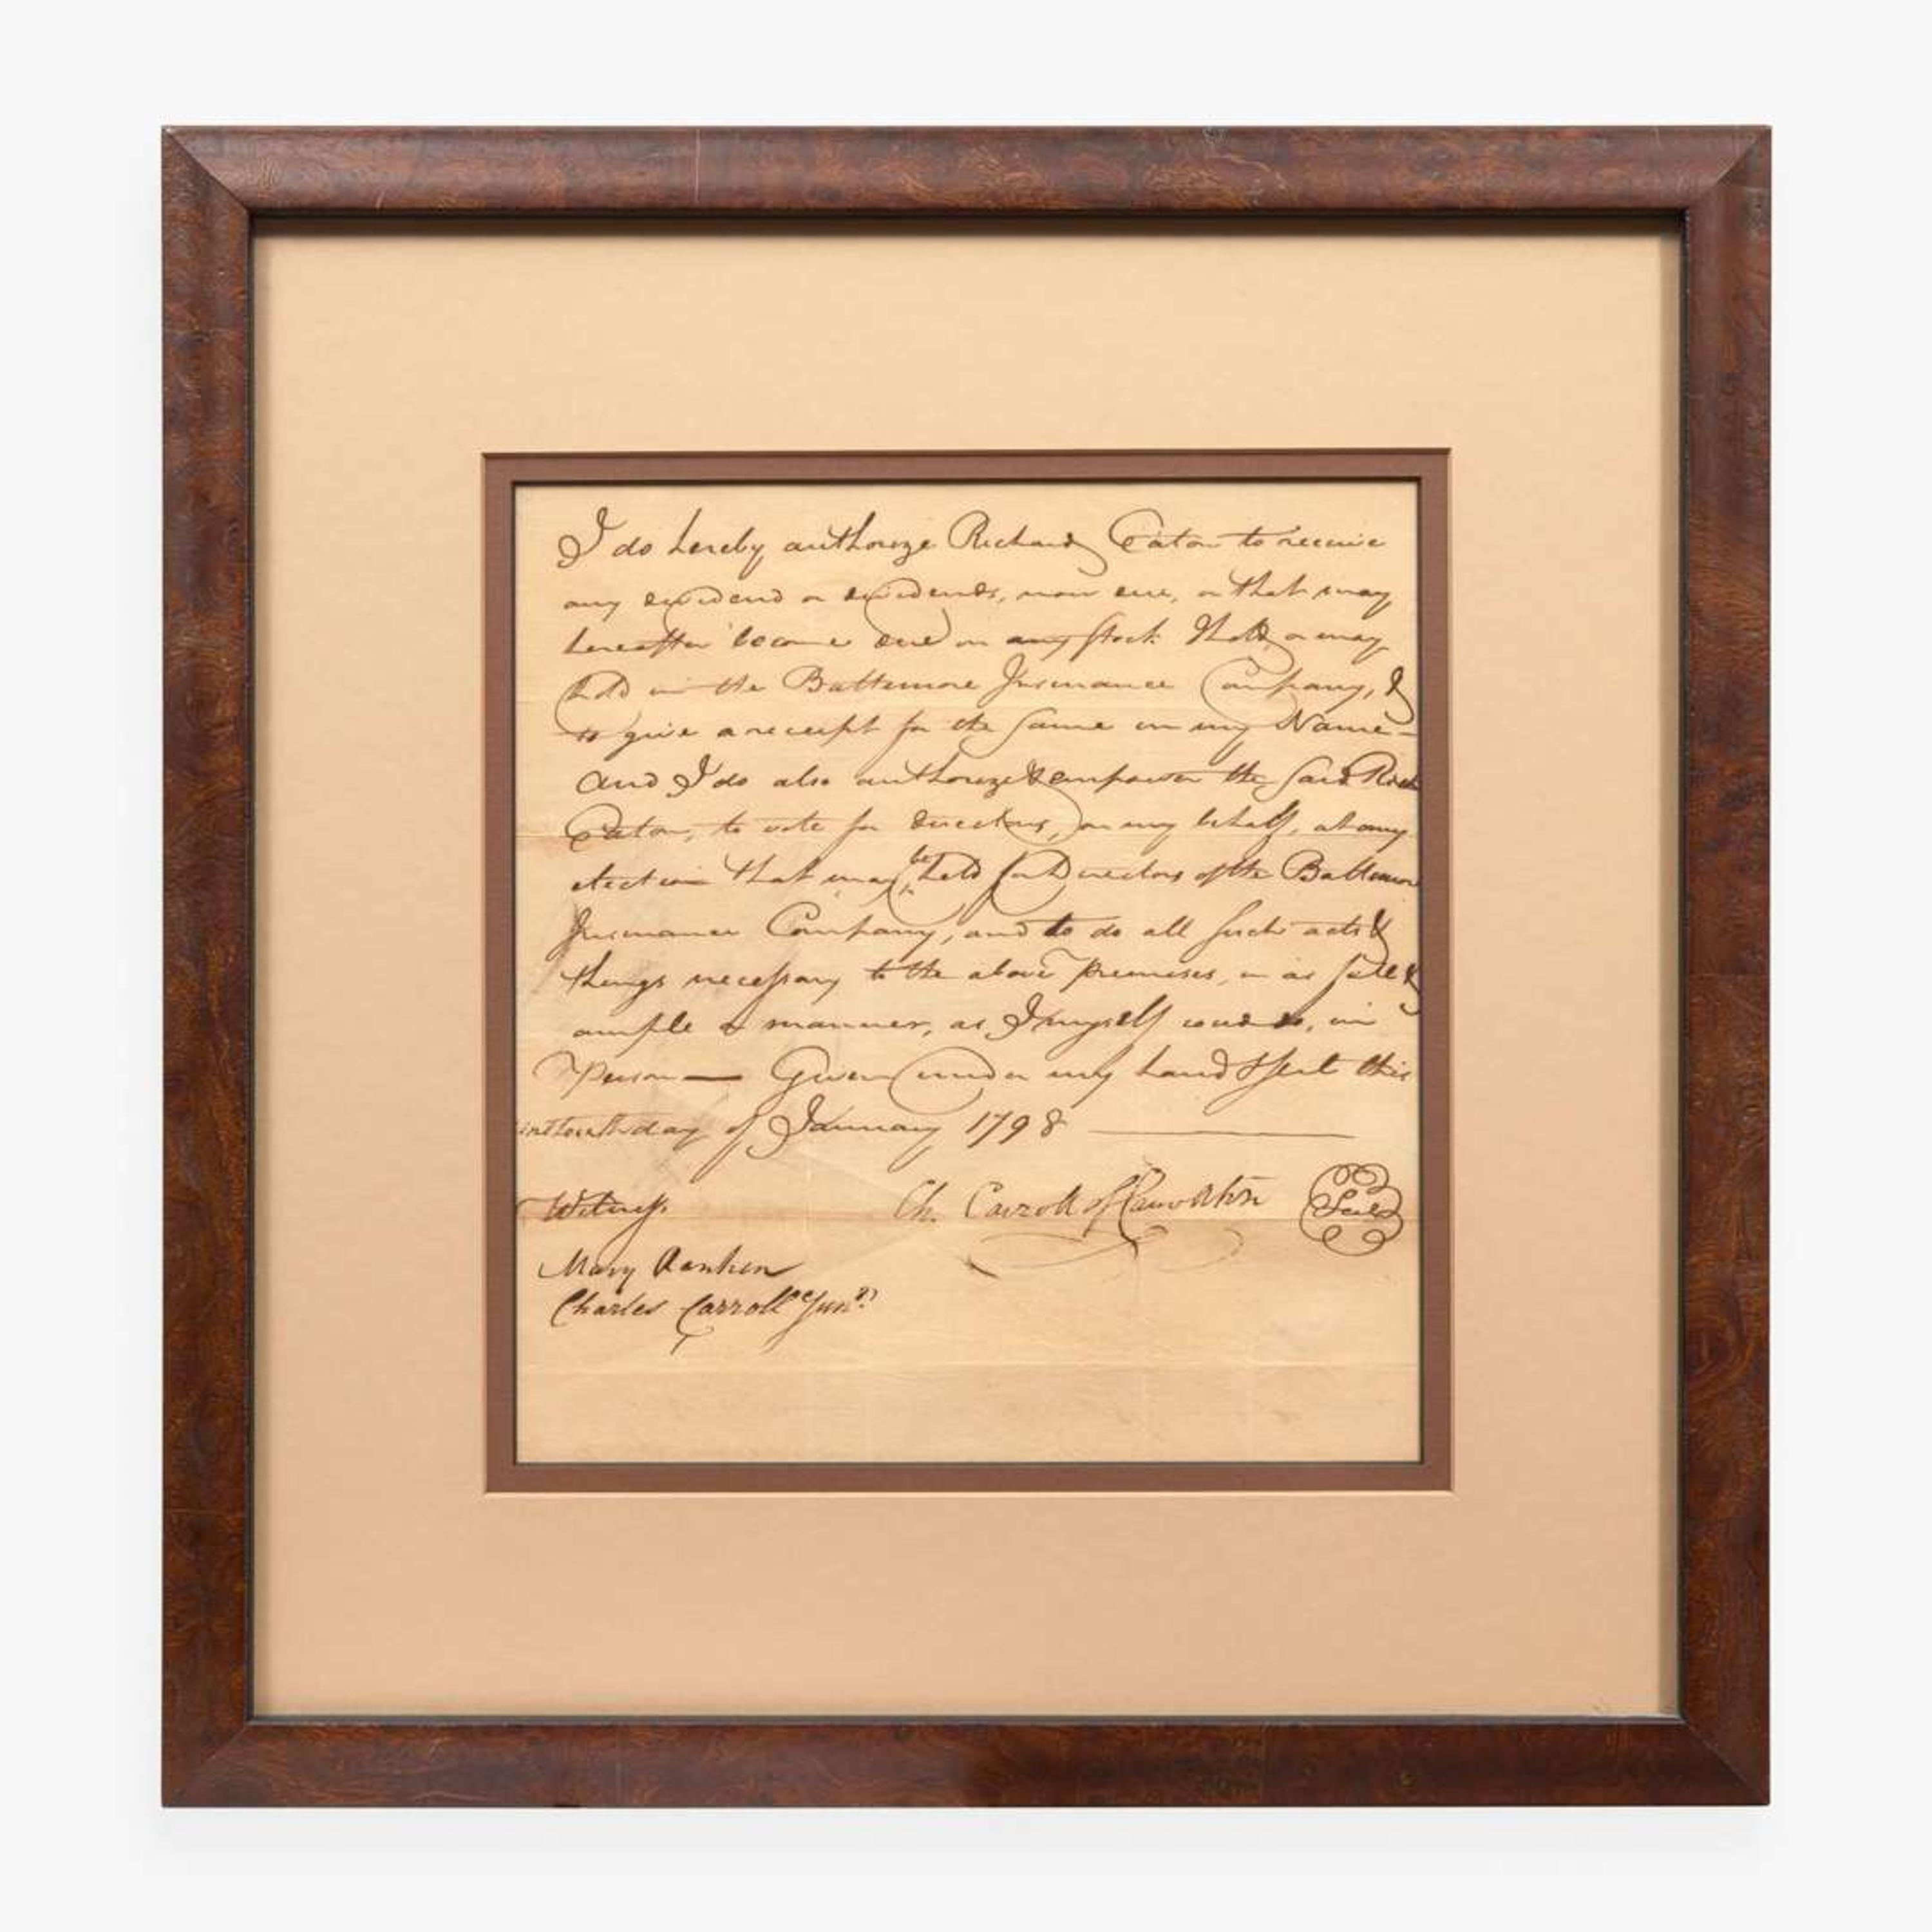 I do hereby authorize Richard Caton to receive
any dividend or dividends, now due, or that may
hereafter become due on any stock I hold, or may
hold in the Baltimore Insurance Company, &
to give a receipt for the same in my Name –
and I do also authorize & empower the said Rich
Caton, to vote for directors, on my behalf, at any
election that may be held for Directors of the Baltimore
Insurance Company, and to do all such acts &
things necessary to the above premises, in as full &
ample a manner, as I myself could do, in
Person — Given under my hand & seal this
day of January 1798
Witness
Ch. Carroll of Carrollton
Seal
Mary Rankin
Charles Carroll Junr.